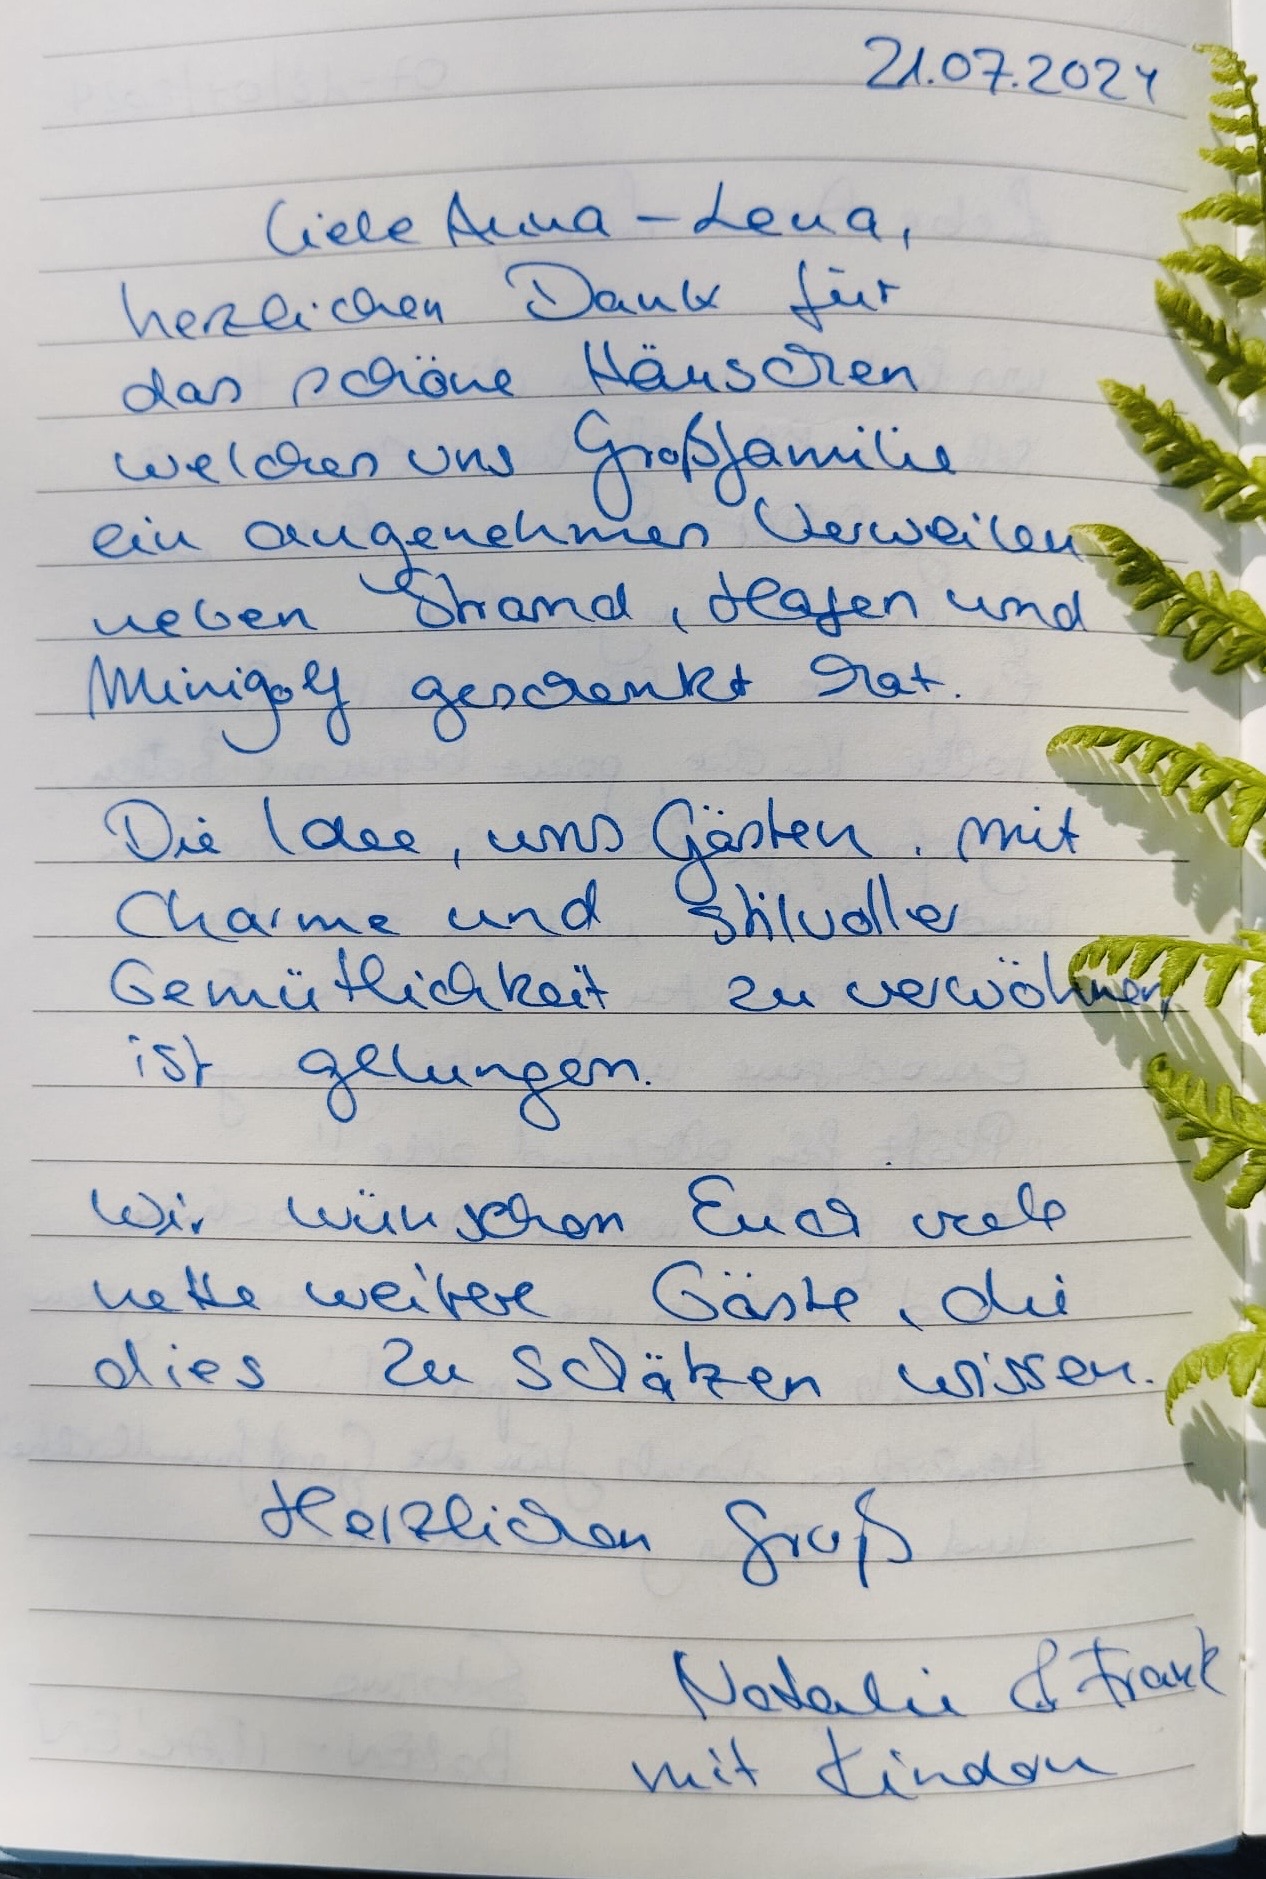 21.07.2024
Liebe Anna-Lena,
herzlichen Dank für
das schöne Häuschen
welches uns Großfamilie
ein angenehmes Verweilen
neben Strand, Hafen und
Minigolf geschenkt hat.
Die Idee, uns Gästen, mit
Charme und stilvoller
Gemütlichkeit zu verwöhnen
ist gelungen.
Wir wünschen Euch viele
nette weitere Gäste, die
dies zu schätzen wissen.
Herzlichen Gruß
Natalie & Frank
mit Kindern